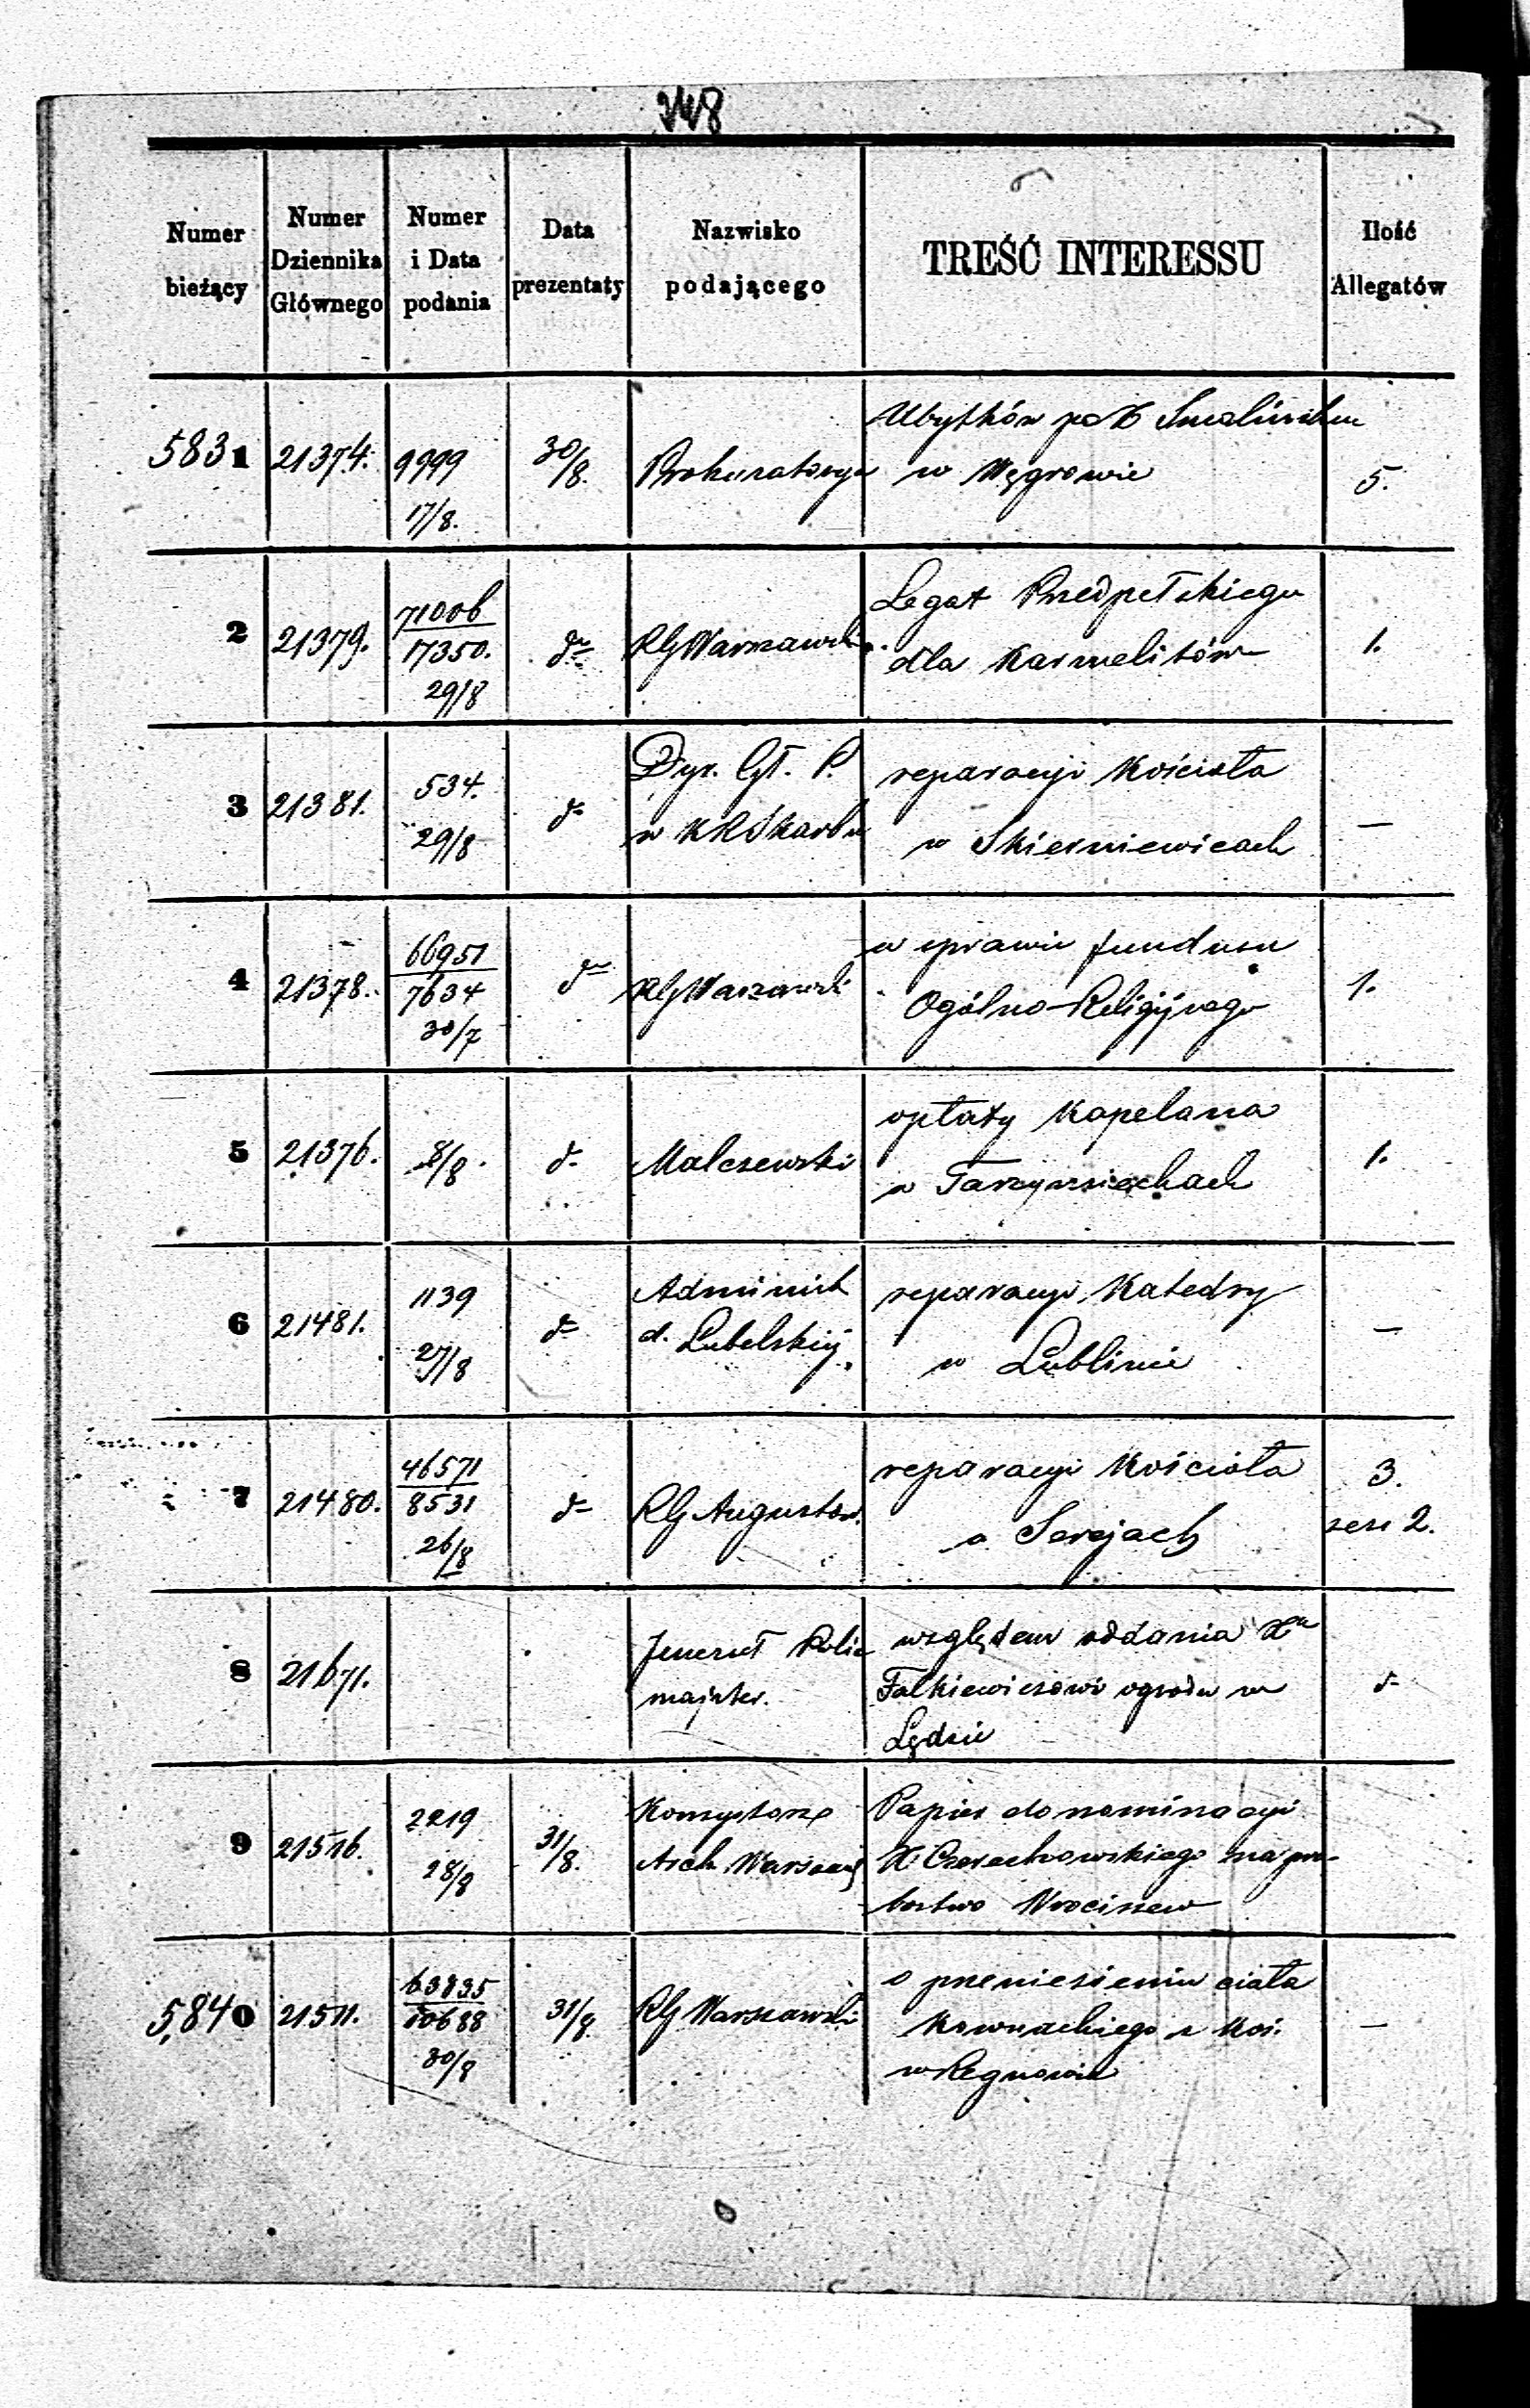 248
Numer bieżący
Numer Dziennika Głównego
Numer i Data podania
Data prezentaty
Nazwisko podającego
TREŚĆ INTERESSU
Ilość Allegatów
5831 21374. 9999 17/8. 30/8. Prokuratorya
Ubytków po X
w Węgrowie
5.
2 21379. 71006 17350. 29/8 do RG Warszawski
Legat Przedpełskiego
dla Karmelitów
1.
3 21381. 534. 29/8 do
Dyr. Gł. P.
w KRSkarbu
reparacyi Kościoła
w Skierniewicach
—
4 21378. 66951 7634 30/7 do RG Warszawski
w sprawie funduszu
Ogólno-Religijnego
1.
5 21376. 8/8. do Malczewski
opłaty Kapelana
w
1.
6 21481. 1139 27/8 do
Administ
d. Lubelskiej
reparacyi Katedry
w Lublinie
—
7 21480. 46571 8531 26/8 do RG Augustow.
reparacyi Kościoła
w Serejach
3.
2.
8 21671.
Jenerał Polic
majster.
względem oddania Xu
Falkiewiczowi ogrodu w
Lędzie
9 21516. 2219 28/8 31/8.
Konsystorz
Arch. Warszawsj
Papier do nominacyi
X Czerechowskiego na pro-
bostwo Wrociszew
5,840 21511. 63835 10688 30/8 31/8. RG Warszawski
o przeniesieniu ciała
Kownackiego z Koś.
w Regnowie
—